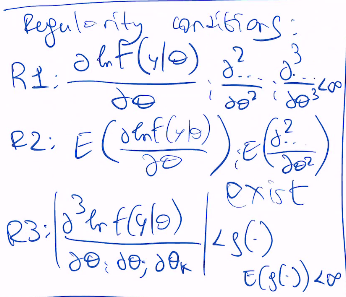 Regularity conditions:
R1: ∂lnf(y|θ)/∂θ ; ∂².../∂θ² ; ∂³.../∂θ³ <∞
R2: E(∂lnf(y|θ)/∂θ) ; E(∂².../∂θ²)
exist
R3: |∂³lnf(y|θ)/∂θi ∂θj ∂θk| < g(·)
E(g(·))<∞